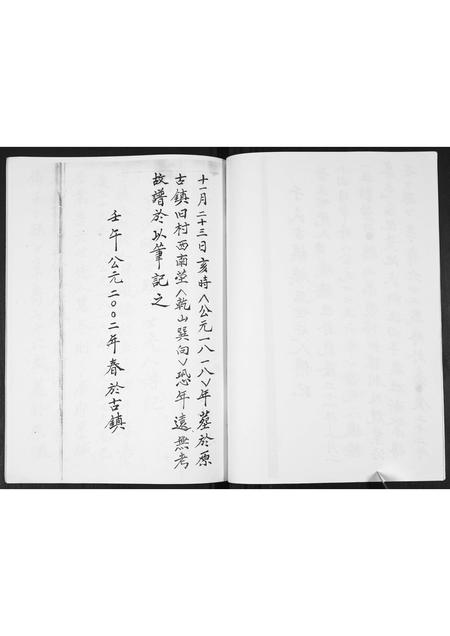 十一月二十三日亥時〈公元一八一八〉年塟於原
古鎮旧村西南塋〈乾山巽向〉恐年遠無考
故譜於以筆記之
壬午公元二〇〇二年春於古鎮